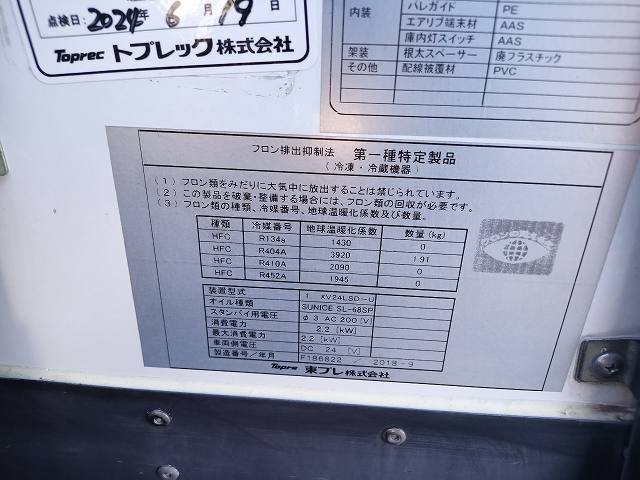 点検日: 2024年 6月 19日
Toprec トプレック株式会社
内装 バレガド PE
エアリブ端末材 AAS
庫内灯スイッチ AAS
架装 根太スペーサー 廃プラスチック
その他 配線被覆材 PVC
フロン排出抑制法 第一種特定製品
(冷凍・冷蔵機器)
(1) フロン類をみだりに大気中に放出することは禁じられています。
(2) この製品を破棄・整備する場合には、フロン類の回収が必要です。
(3) フロン類の種類、冷媒番号、地球温暖化係数及び数量。
種類 冷媒番号 地球温暖化係数 数量 (kg)
HFC R134a 1430 0
HFC R404A 3920 1.91
HFC R410A 2090 0
HFC R452A 1945 0
装置型式 1. XV24LSD-U
オイル種類 SUNICE SL-68SP
スタンバイ用電圧 φ3 AC 200 [V]
消費電力 2.2 [kW]
最大消費電力 2.2 [kW]
車両側電圧 DC 24 [V]
製造番号/年月 F186822 / 2018-9
Topre 東プレ株式会社